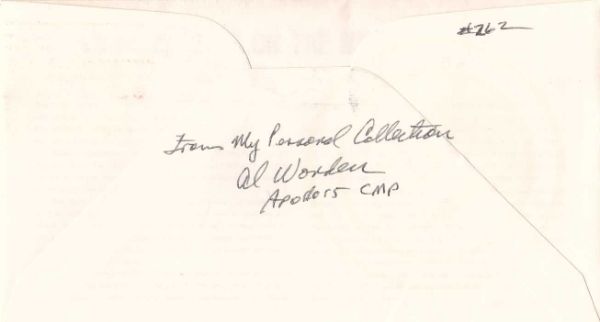 #262
From My Personal Collection
Al Worden
Apollo 15 CMP